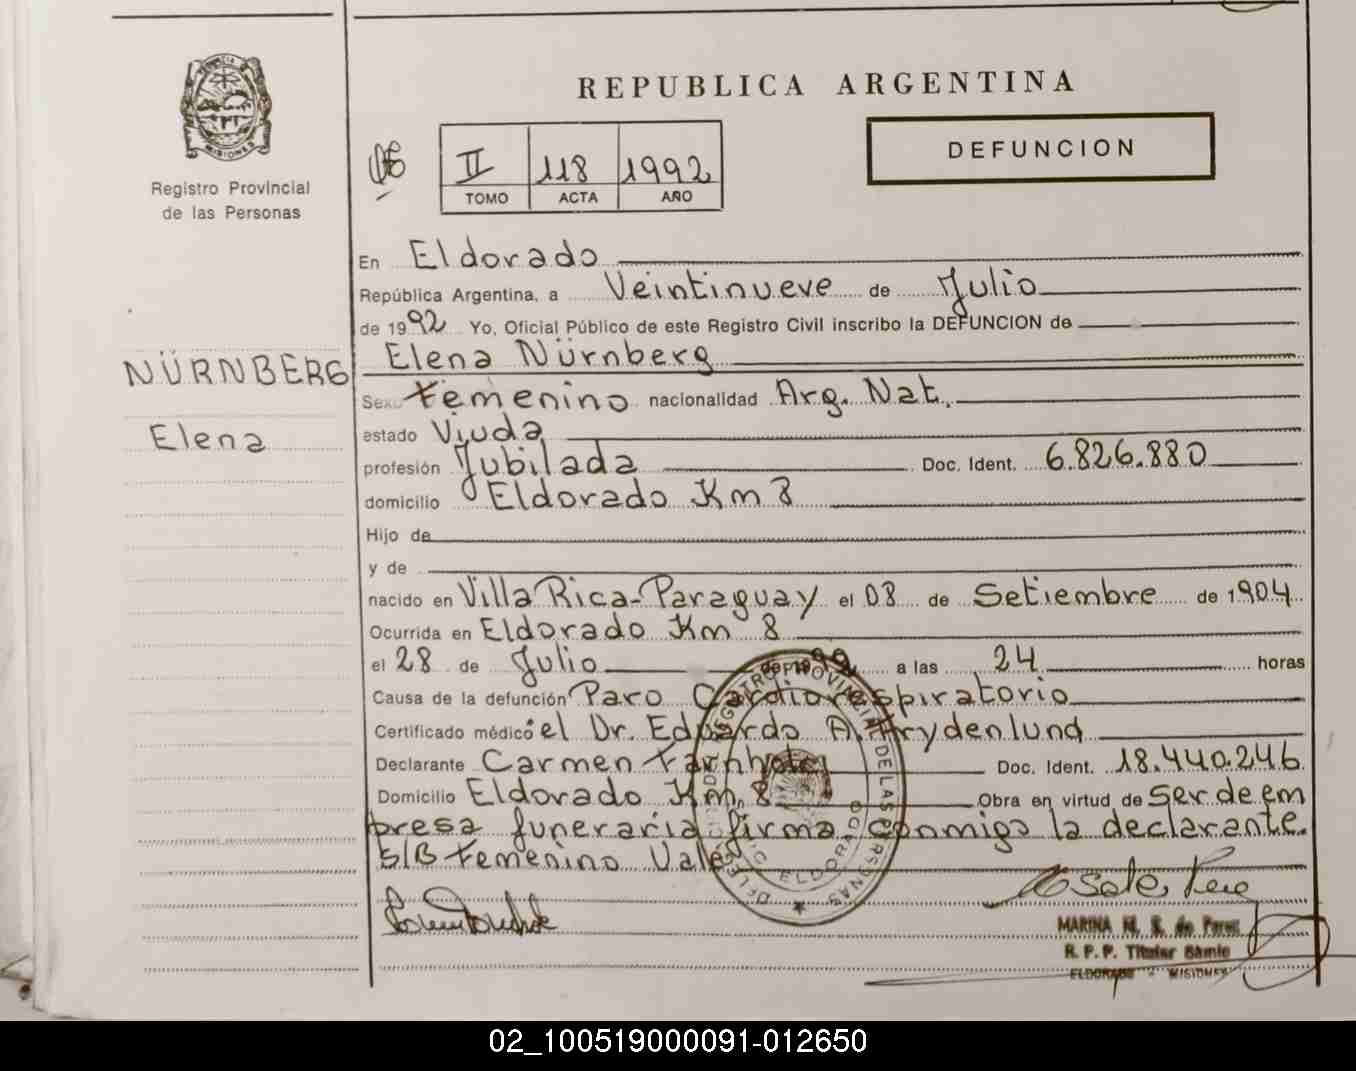 REPUBLICA ARGENTINA
PROVINCIA DE
MISIONES
Registro Provincial
de las Personas
II 118 1992
TOMO ACTA AÑO
DEFUNCION
En Eldorado
República Argentina, a Veintinueve de Julio
de 1992 Yo, Oficial Público de este Registro Civil inscribo la DEFUNCION de
NÜRNBERG
Elena
Elena Nürnberg
Sexo femenino nacionalidad Arg. Nat.
estado Viuda
profesión Jubilada Doc. Ident. 6.826.880
domicilio Eldorado Km 8
Hijo de
y de
nacido en Villa Rica-Paraguay el 08 de Setiembre de 1904
Ocurrida en Eldorado Km 8
el 28 de Julio de 1992 a las 24 horas
Causa de la defunción Paro Cardiorespiratorio
Certificado médico el Dr. Eduardo A. Frydenlund
Declarante Carmen Doc. Ident. 18.440.246
Domicilio Eldorado Km. 8 Obra en virtud de Ser de em
presa funeraria firma conmigo la declarante.
S/B femenino Vale
REGISTRO PROVINCIAL DE LAS PERSONAS
ELDORADO
MARINA M. S. de Perez
R. P. P. Titular
ELDORADO - MISIONES
02_100519000091-012650